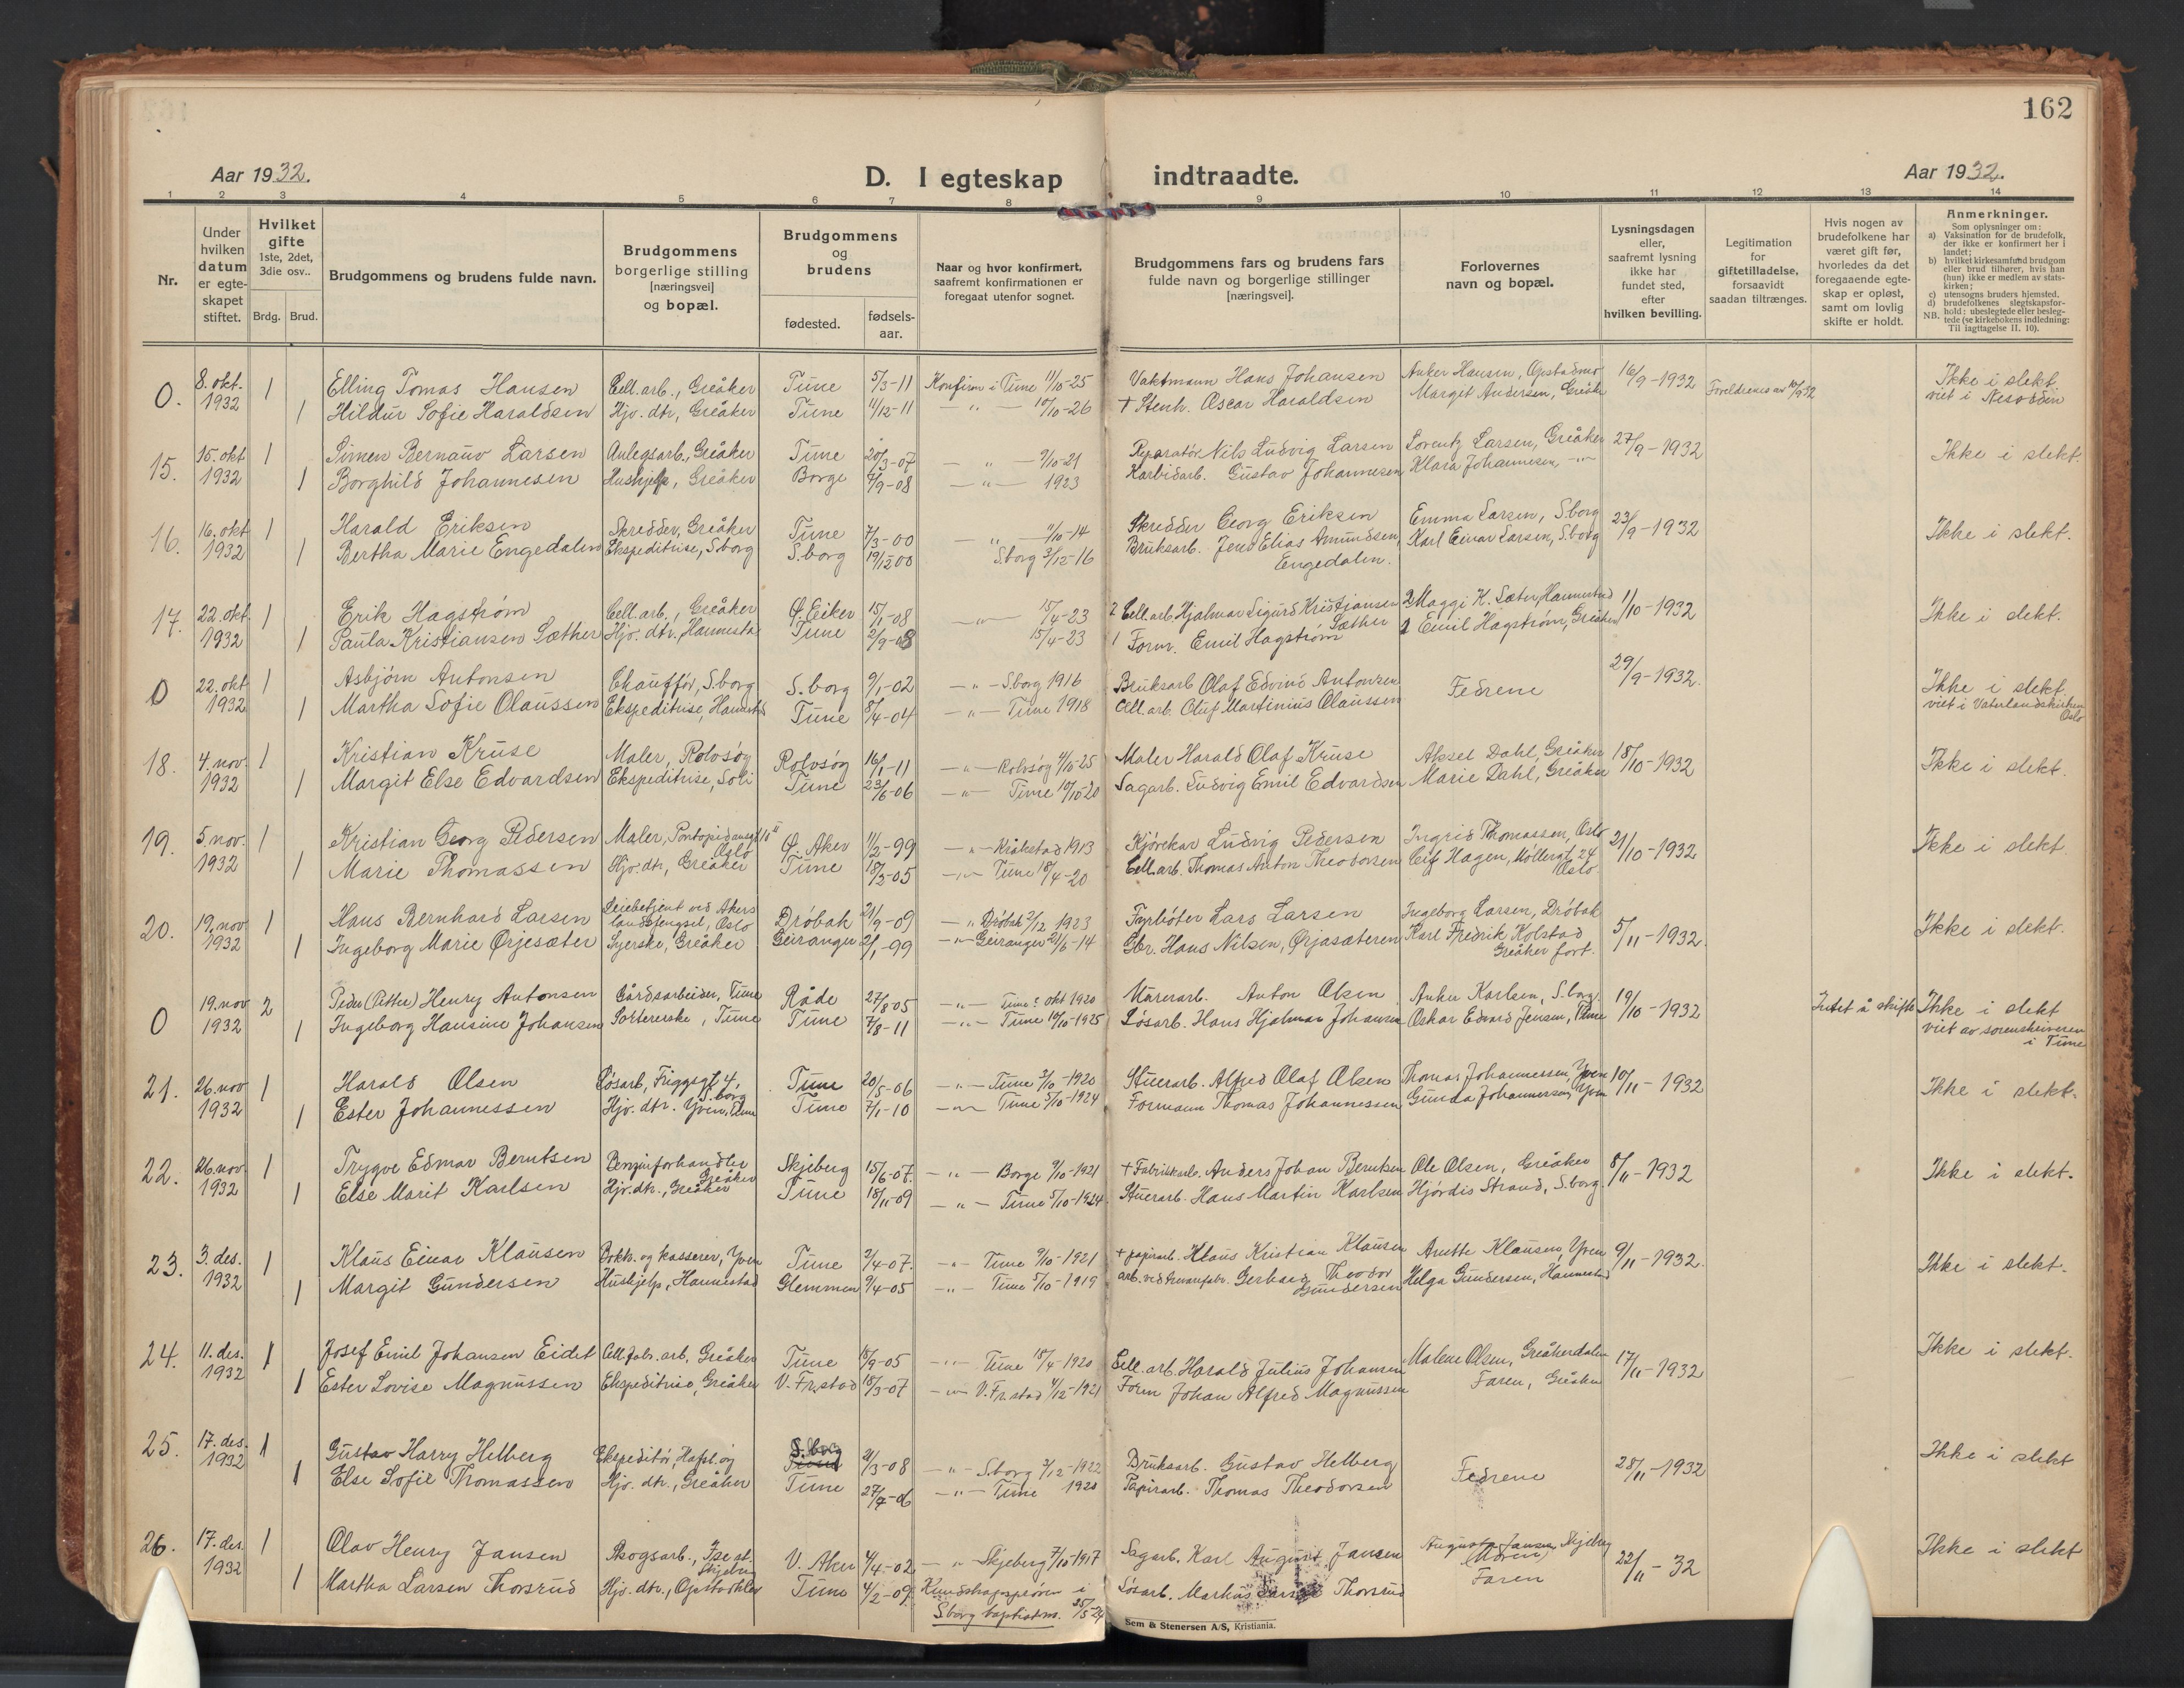 162
Aar 1932.
D. I egteskap indtraadte.
Aar 1932.
1 2 3 4 5 6 7 8 9 10 11 12 13 14
Nr.
Under hvilken datum er egte-skapet stiftet.
Hvilket gifte 1ste, 2det, 3die osv..
Brdg. Brud.
Brudgommens og brudens fulde navn.
Brudgommens borgerlige stilling [næringsvei] og bopæl.
Brudgommens og brudens
fødested.
fødsels-aar.
Naar og hvor konfirmert, saafremt konfirmationen er foregaat utenfor sognet.
Brudgommens fars og brudens fars fulde navn og borgerlige stillinger [næringsvei].
Forlovernes navn og bopæl.
Lysningsdagen eller, saafremt lysning ikke har fundet sted, efter hvilken bevilling.
Legitimation for giftetilladelse, forsaavidt saadan tiltrænges.
Hvis nogen av brudefolkene har været gift før, hvorledes da det foregaaende egte-skap er opløst, samt om lovlig skifte er holdt.
Anmerkninger.
Som oplysninger om:
a) Vaksination for de brudefolk, der ikke er konfirmert her i landet;
b) hvilket kirkesamfund brudgom eller brud tilhører, hvis han (hun) ikke er medlem av stats-kirken;
c) utensogns bruders hjemsted.
d) brudefolkenes slegtskapsfor-hold: ubeslegtede eller besleg-tede (se kirkebokens indledning: Til iagttagelse II. 10).
NB.
0. 8. okt. 1932 1 Elling Tomas Hansen Cell. arb., Greåker Tune 5/3-11 Konfirm. i Tune 11/10-25 Vaktmann Hans Johansen Anker Hansen, 16/9-1932 Ikke i slekt.
1 Hildur Sofie Haraldsen Hjv. dtr, Greåker Tune 11/12-11 -"- 10/10-26 + Stenh. Oscar Haraldsen Margit Andersen, Greåk viet i Nesodden
15. 15. okt 1932 1 Simen Bernauv Larsen Anlegsarb., Greåker Tune 20/3-07 -"- 9/10-21 Reparatör Nils Ludvig Larsen Lorentz Larsen, Greåker 27/9-1932 Ikke i slekt.
1 Borghild Johannesen Hushjelp, Greåker Borge 4/9-08 -"- 1923 Karbidarb. Gustav Johannesen Klara Johannesen, -"-
16. 16. okt 1932 1 Harald Eriksen Skredder, Greåker Tune 7/3-00 -"- 11/10-14 Skredder Georg Eriksen Emma Larsen, S.borg 23/9-1932 Ikke i slekt.
1 Bertha Marie Engedalen Ekspeditrise, S.borg S.borg 19/12-00 S.borg 3/12-16 Bruksarb. Jens Elias Amundsen, Engedalen. Karl Einar Larsen, S.borg
17. 22. okt 1932 1 Erik Hagstrøm Cell. arb., Greåker Ø. Eiker 15/1-08 -"- 15/4-23 2 Cell. arb. Hjalmar Sigurd Kristjansen Sæther 2 Maggi K. Sæter, Hannestad 11/10-1932 Ikke i slekt.
1 Paula Kristiansen Sæther Hjv. dtr, Hannesta Tune 2/9-08 15/4-23 1 Form. Emil Hagstrøm 1 Emil Hagstrøm, Greåker
0 22. okt 1932 1 Asbjørn Antonsen Chauffør, S.borg S.borg 9/1-02 -"- S.borg 1916 Bruksarb Olaf Edvind Antonsen Fedrene 29/9-1932. Ikke i slekt.
1 Martha Sofie Olaussen Ekspeditrise, Hannestad Tune 8/4-04 -"- Tune 1918 Cell. arb. Oluf Martinius Olaussen viet i Vaterlandskirken Oslo
18. 4. nov. 1932 1 Kristian Kruse Maler, Rolvsøy Rolvsøy 16/1-11 -"- Rolvsøy 4/10-25 Maler Harald Olaf Kruse Aksel Dahl, Greåker 18/10-1932 Ikke i slekt.
1 Margit Else Edvardsen Ekspeditrise, Soli Tune 23/6-06 -"- Tune 10/10-20 Sagarb. Ludvig Emil Edvardsen Marie Dahl, Greåker
19. 5. nov. 1932 1 Kristian Georg Pedersen Maler, Pontopidansgt 10 II Oslo Ø. Aker 11/2-99 -"- Kråkstad 1913 Kjørekar Ludvig Pedersen Ingrid Thomassen, Oslo 21/10-1932 Ikke i slekt.
1 Marie Thomassen Hjv. dtr, Greåker Tune 18/3-05 -"- Tune 18/4-20 Cell. arb. Thomas Anton Theodorsen Leif Hagen, Møllergt 24 Oslo.
20. 19. nov 1932 1 Hans Bernhard Larsen Leiebetjent ved Akers landsfengsel, Oslo Drøbak 21/9-09 -"- Drøbak 2/12 1923 Fyrbøter Lars Larsen Ingeborg Larsen, Drøbak 5/11-1932. Ikke i slekt.
1 Ingeborg Marie Ørjesæter Syerske, Greåker Geiranger 2/1-99 -"- Geiranger 21/6-14 Gbr. Hans Nilsen, Ørjasæteren Karl Fredrik Kolstad Greåker fort.
0 19. nov 1932 2 Peder (Petter) Henry Antonsen Gårdsarbeider, Tune Råde 27/8 05 -"- Tune? okt 1920 Murerarb. Anton Olsen Anker Karlsen, S.borg. 19/10-1932 Intet å skifte Ikke i slekt
1 Ingeborg Hansine Johansen Sortererske, Tune Tune 7/8-11 -"- Tune 10/10-1925 Løsarb. Hans Hjalmar Johansen Oskar Edvard Jensen, Tune viet av sorenskriveren i Tune
21. 26. nov 1932 1 Harald Olsen Løsarb, Friggsgt 4, S.borg Tune 20/5-06 -"- Tune 3/10-1920 Stuerarb. Alfred Olaf Olsen Thomas Johannessen, Yven 10/11-1932 Ikke i slekt.
1 Ester Johannessen Hjv. dtr. Yven, Tune Tune 7/1-10 -"- Tune 5/10-1924 Formann Thomas Johannessen Gunda Johannessen, Yven
22. 26. nov. 1932 1 Trygve Edmar Berntsen Benzinforhandler Greåker Skjeberg 15/6-07. -"- Borge 9/10-1921 + Fabrikkarb. Anders Johan Berntsen Ole Olsen, Greåker 8/11-1932 Ikke i slekt.
1 Else Marit Karlsen Hjv. dtr., Greåker Tune 18/11-09 -"- Tune 5/10-1924. Stuerarb. Hans Martin Karlsen Hjørdis Strand, S.borg.
23. 3. des. 1932 1 Klaus Einar Klausen Bokh. og kasserer, Yven Tune 2/4-07. -"- Tune 9/10-1921 + papirarb. Klaus Kristian Klausen Anette Klausen, Yven 9/11-1932. Ikke i slekt.
1 Margit Gundersen Hushjelp, Hannestad Glemmen 9/4-05 -"- Tune 5/10-1919 Gerhard Theodor Gundersen Helga Gundersen, Hannestad
24. 11. des. 1932 1 Josef Emil Johansen Eidet Cell.fabr. arb, Greåker Tune 15/9-05 -"- Tune 18/4-1920 Cell. arb. Harald Julius Johansen Malene Olsen, Greåkerdalen 17/11-1932 Ikke i slekt.
1 Ester Lovise Magnussen Ekspeditrise, Greåker V. Fr.stad 18/3-07 -"- V. Fr.stad 4/12-1921 Form Johan Alfred Magnussen Faren, Greåker
25. 17. des. 1932 1 Gustav Harry Helberg Ekspeditør, Hafsl.øy S.borg 21/3-08 -"- S.borg 3/12-1922 Bruksarb. Gustav Helberg Fedrene 28/11-1932 Ikke i slekt
1 Else Sofie Thomassen Hjv. dtr., Greåker Tune 27/7-06 -"- Tune 1920 Papirarb. Thomas Theodorsen
26. 17. des. 1932 1 Olav Henry Jansen Skogsarb., Ise st. Skjeberg V. Aker 4/4-02 -"- Skjeberg 7/10-1917 Sagarb. Karl August Jansen Augusta Jansen, Skjeberg (Moren) 22/11-32 Ikke i slekt
1 Martha Larsen Thorsrud Hjv. dtr., Opstadklev Tune 4/2-09. Kundskapsprøven i S.borg baptistm. 25/5-24 Løsarb. Markus Larsen Thorsrud Faren
Sem & Stenersen A/S, Kristiania.